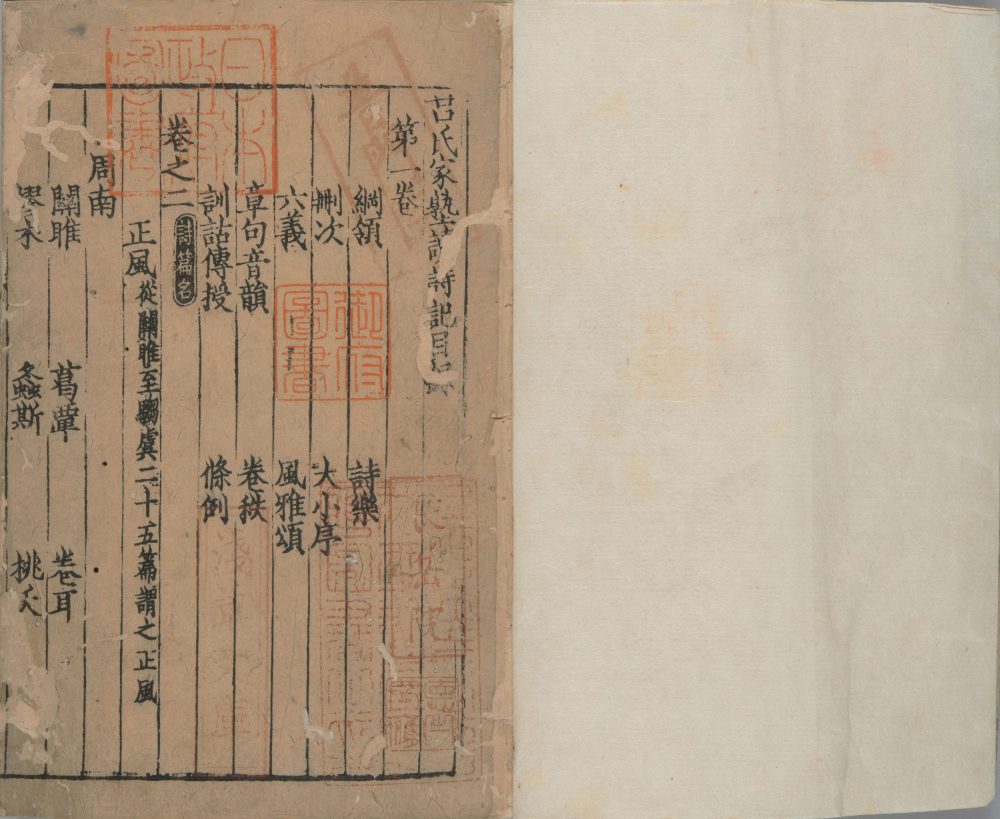 呂氏家塾讀詩記目錄
第一卷
綱領 詩樂
刪次 大小序
六義 風雅頌
章句音韻 卷秩
訓詁傳授 條例
卷之二 詩篇名
正風 從關雎至騶虞二十五篇謂之正風
周南
關雎 葛覃 卷耳
樛木 螽斯 桃夭
日本政府圖書
御府圖書
淺草文庫